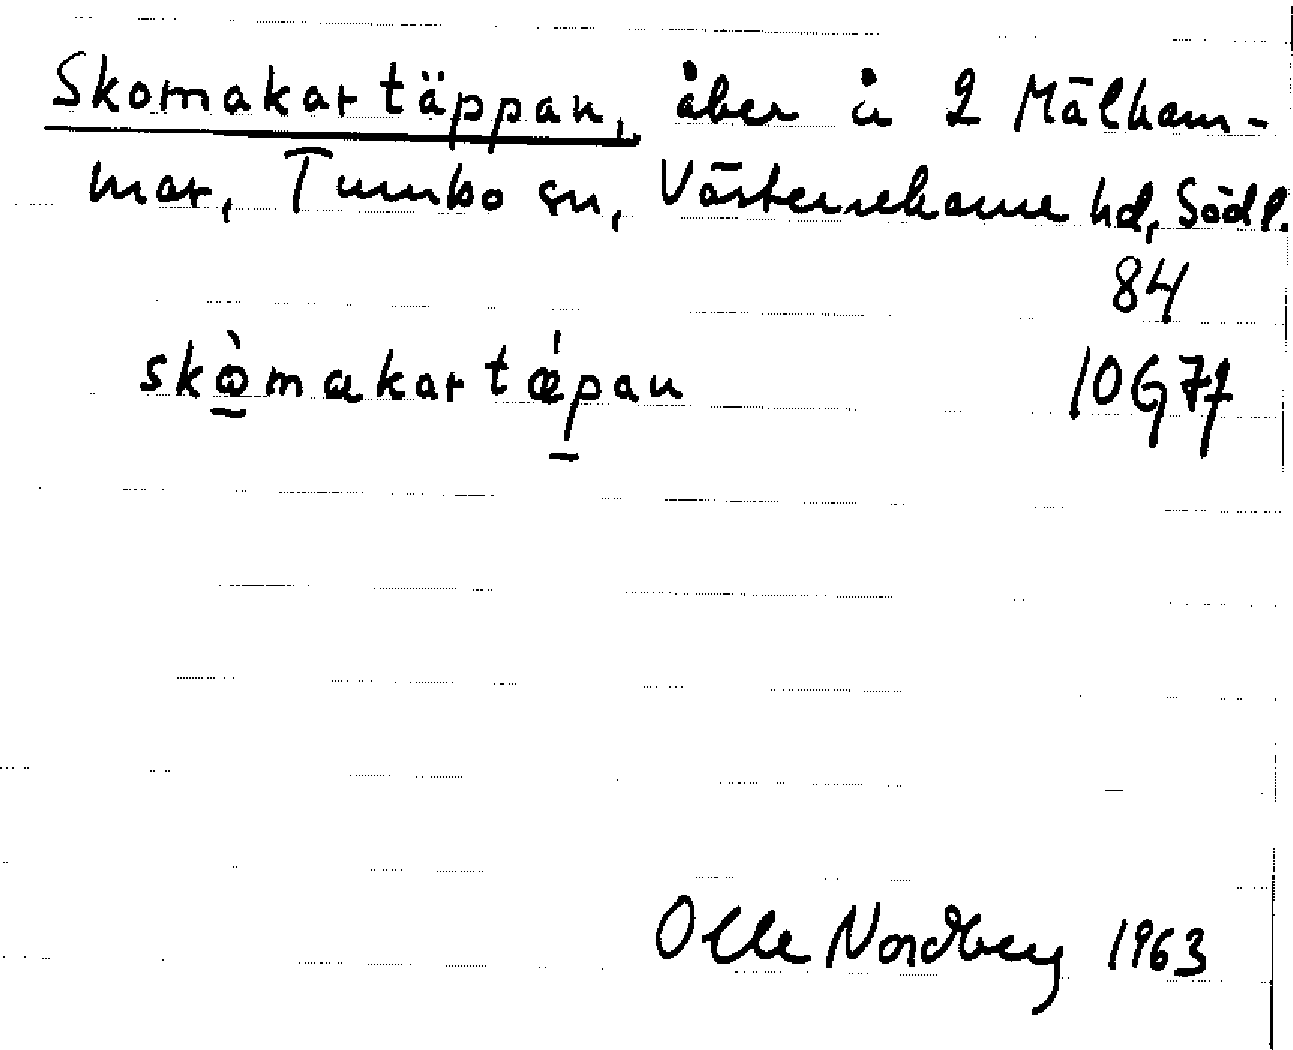 Skomakartäppan, åker å 2 Mälham-
mar, Tumbo sn, Västerrekarne hd, Södl.
84
skò̠makartǽp̠an 10G7f
Olle Nordberg 1963